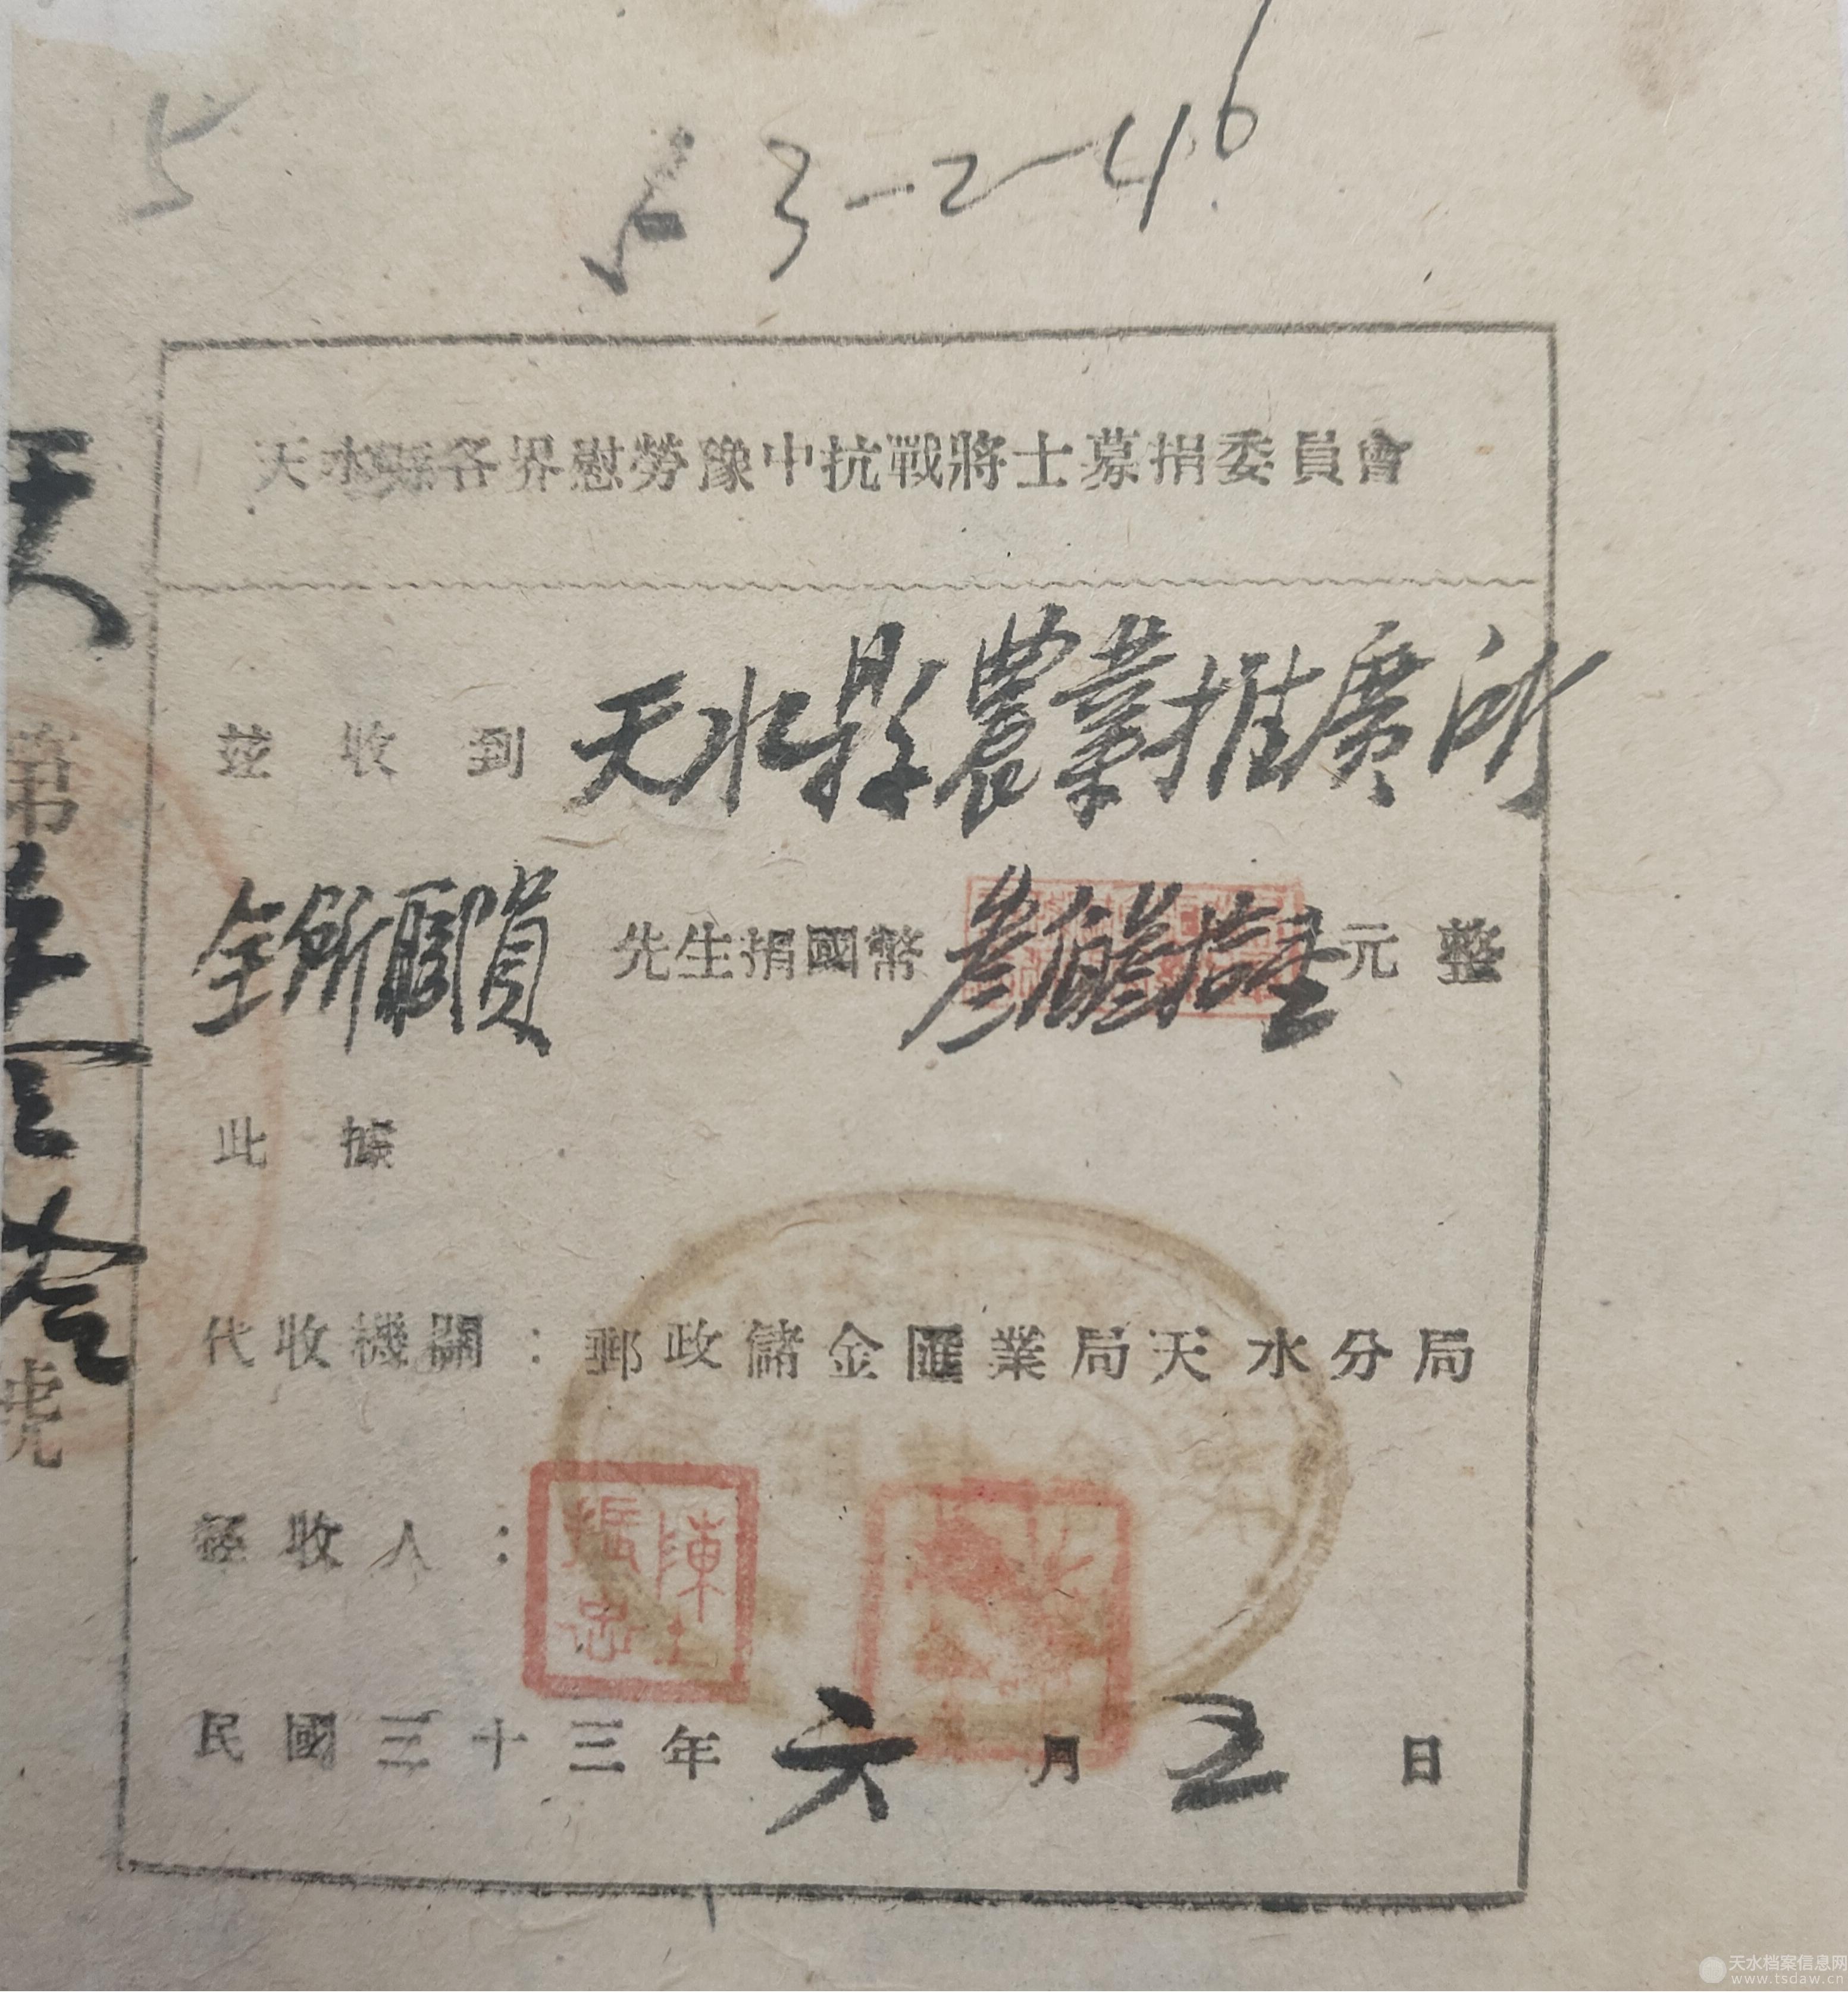 5
3-2-46
天水縣各界慰勞豫中抗戰將士募捐委員會
茲收到天水縣農業推廣所
全所職員先生捐國幣叁佰叁拾壹元整
此據
代收機關：郵政儲金匯業局天水分局
經收人：
陳
振
民國三十三年六月五日
天
第
號
天水档案信息网
www.tsdaw.cn